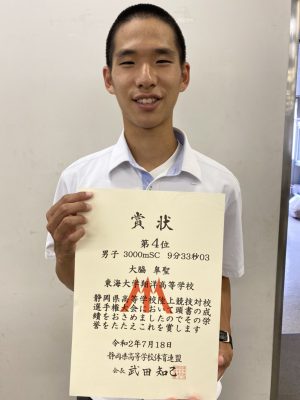 賞状
第4位
男子 3000mSC 9分33秒03
大脇 阜聖
東海大学翔洋高等学校
静岡県高等学校陸上競技対校
選手権大会において頭書の成
績をおさめましたのでその栄
誉をたたえこれを賞します
令和2年7月18日
静岡県高等学校体育連盟
会長 武田知己